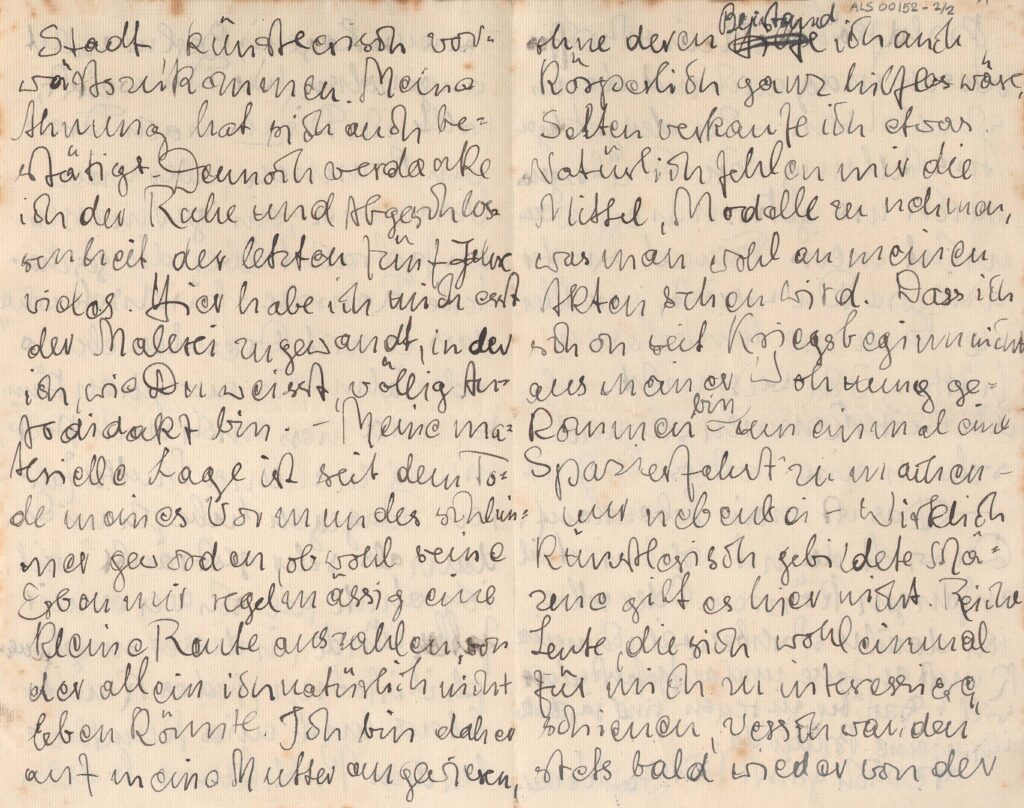 Stadt künstlerisch vor-
wärtszukommen. Meine
Ahnung hat sich auch be-
stätigt. Dennoch verdanke
ich der Ruhe und Abgeschlos-
senheit der letzten fünf Jahre
vieles. Hier habe ich mich erst
der Malerei zugewandt, in der
ich, wie Du weisst, völlig Au-
todidakt bin. – Meine ma-
terielle Lage ist seit dem To-
de meines Vormundes schlim-
mer geworden, obwohl seine
Erben mir regelmässig eine
kleine Rente auszahlen, von
der allein ich natürlich nicht
leben könnte. Ich bin daher
auf meine Mutter angewiesen,
ALS 00152-2/2
Beistand
ohne deren ich auch
körperlich ganz hilflos wäre.
Selten verkaufe ich etwas.
Natürlich fehlen mir die
Mittel, Modelle zu nehmen,
was man wohl an meinen
Akten sehen wird. Dass ich
schon seit Kriegsbeginn nicht
aus meiner Wohnung ge-
kommen bin um einmal eine
Spazierfahrt zu machen –
nur nebenbei – Wirklich
künstlerisch gebildete Mä-
zene gibt es hier nicht. Reiche
Leute, die sich wohl einmal
für mich zu interessieren
schienen, verschwanden
stets bald wieder von der